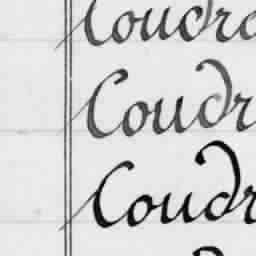 Coudr
Coudr
Coudr